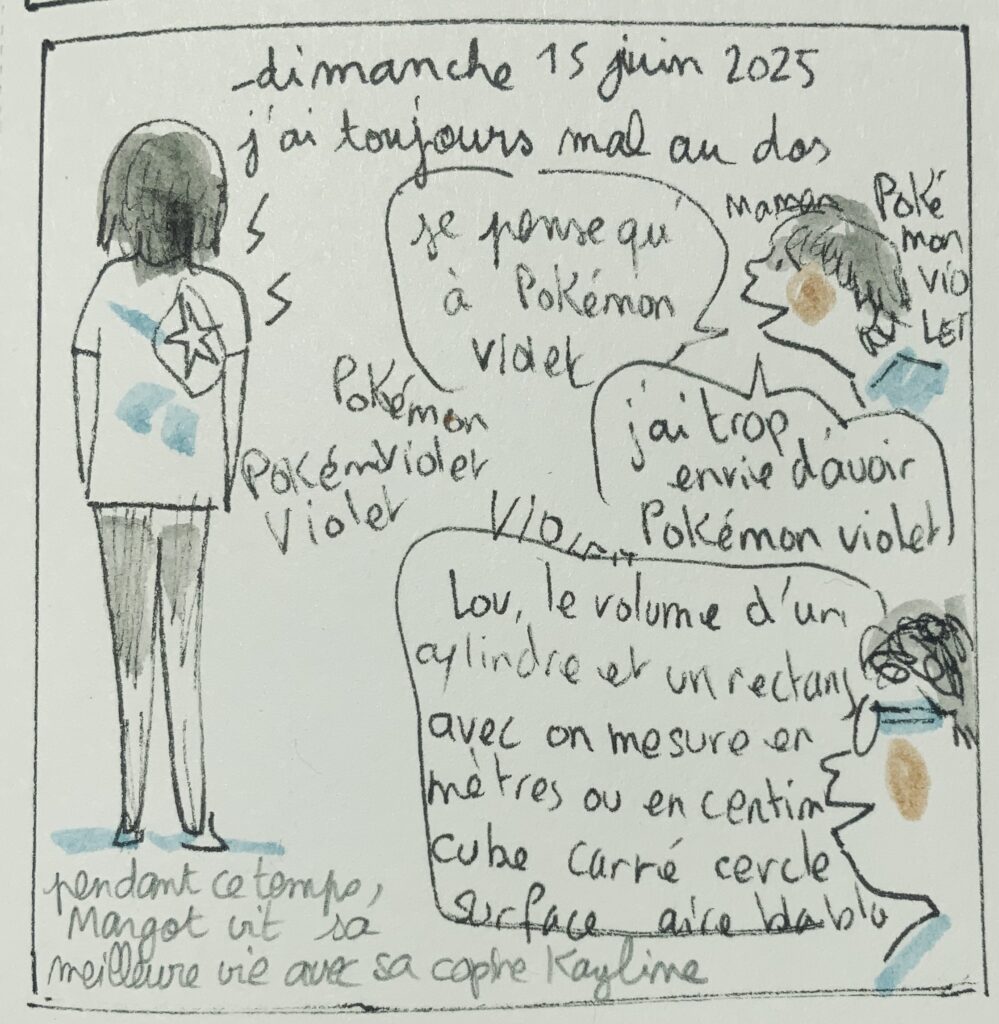 dimanche 15 juin 2025
j'ai toujours mal au dos
je pense qu'
à Pokémon
violet
maman
Poké
mon
vio
LET
j'ai trop
envie d'avoir
Pokémon violet
Pokémon
Pokém Violet
Violet
Lou, le volume d'un
cylindre et un rectang
avec on mesure en
mètres ou en centim
cube carré cercle
surface aire blabla
pendant ce temps,
Margot vit sa
meilleure vie avec sa copine Kayline